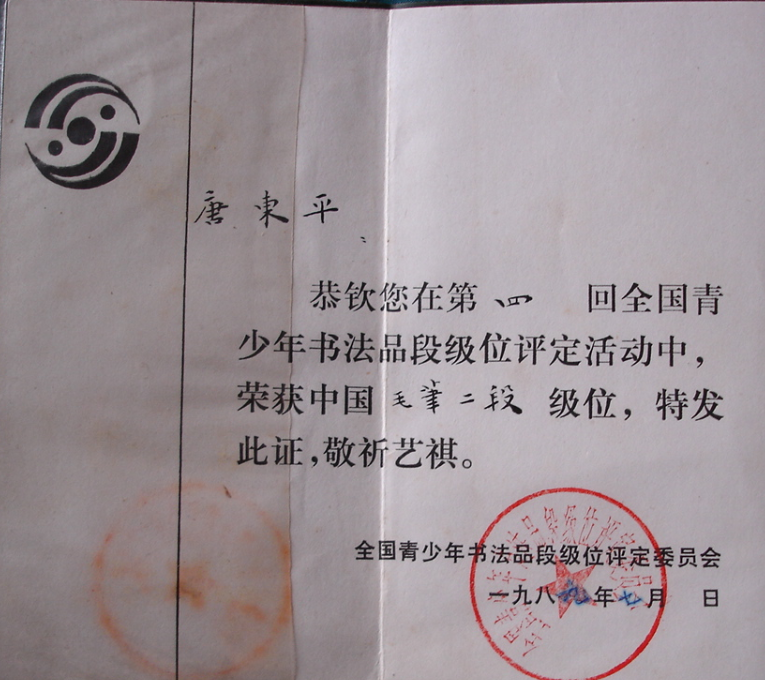 唐東平
恭钦您在第四回全国青
少年书法品段级位评定活动中，
荣获中国毛筆二段级位，特发
此证，敬祈艺祺。
全国青少年书法品段级位评定委员会
一九八九年七月 日